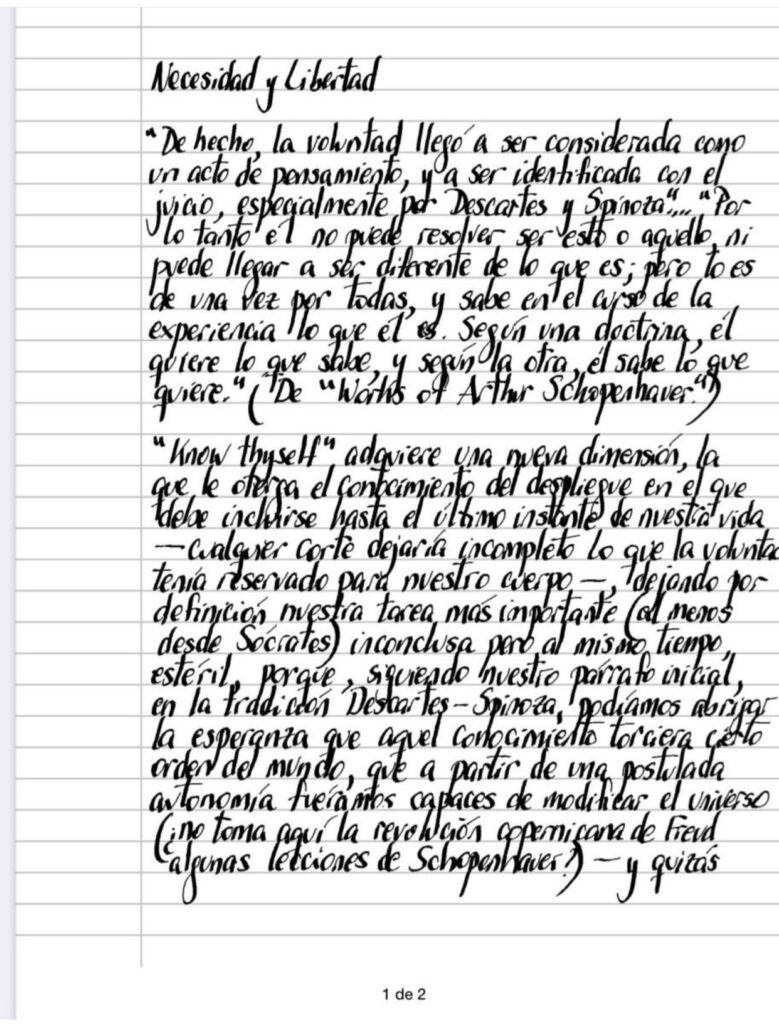 Necesidad y Libertad
"De hecho, la voluntad llegó a ser considerada como
un acto de pensamiento, y a ser identificada con el
juicio, especialmente por Descartes y Spinoza"... "Por
lo tanto él no puede resolver ser esto o aquello, ni
puede llegar a ser diferente de lo que es; pero lo es
de una vez por todas, y sabe en el curso de la
experiencia lo que él es. Según una doctrina, él
quiere lo que sabe, y según la otra, él sabe lo que
quiere." (De "Works of Arthur Schopenhauer")
"Know thyself" adquiere una nueva dimensión, la
que le otorga el conocimiento del despliegue en el que
debe incluirse hasta el último instante de nuestra vida
—cualquier corte dejaría incompleto lo que la voluntad
tenía reservado para nuestro cuerpo—, dejando por
definición nuestra tarea más importante (al menos
desde Sócrates) inconclusa pero al mismo tiempo,
estéril, porque, siguiendo nuestro párrafo inicial,
en la tradición Descartes-Spinoza, podíamos abrigar
la esperanza que aquel conocimiento torciera cierto
orden del mundo, que a partir de una postulada
autonomía fuéramos capaces de modificar el universo
(¿no toma aquí la revolución copernicana de Freud
algunas lecciones de Schopenhauer?) — y quizás
1 de 2